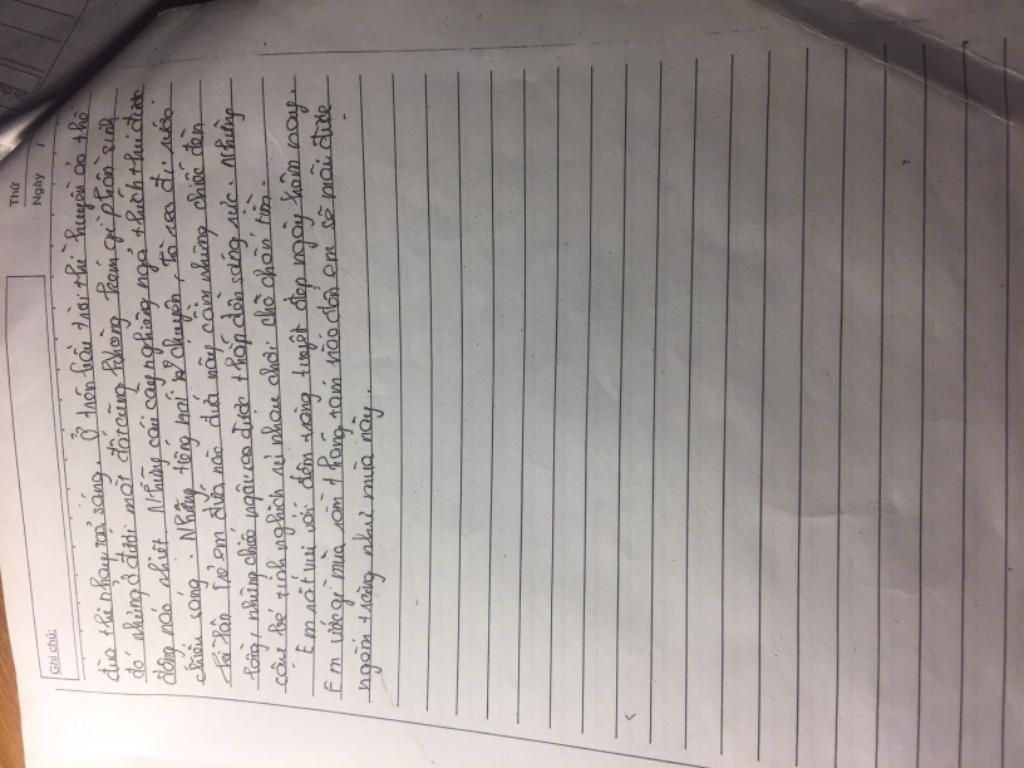 Ghi chú:
Thứ
Ngày
đùa thi nhau toả sáng. Ở trên bầu trời thì huyền ảo thơ
đó nhưng ở dưới mặt đất cũng không kém gì phần sinh
động náo nhiệt. Những cái cây nghiêng ngả thích thú được
chiếu sáng. Những tiếng nói trò chuyện, ta ca đi rước
rộn rã. Trẻ em đứa nào đứa nấy cầm những chiếc đèn
lồng, những chiếc ngôi sao được thắp đèn sáng rực. Những
cậu bé tinh nghịch rủ nhau chơi trò chốn tìm.
Em rất vui với đêm trăng tuyệt đẹp ngày hôm nay.
Em ước gì mùa rằm tháng tám nào đó em sẽ mãi được
ngắm trăng như mùa này.